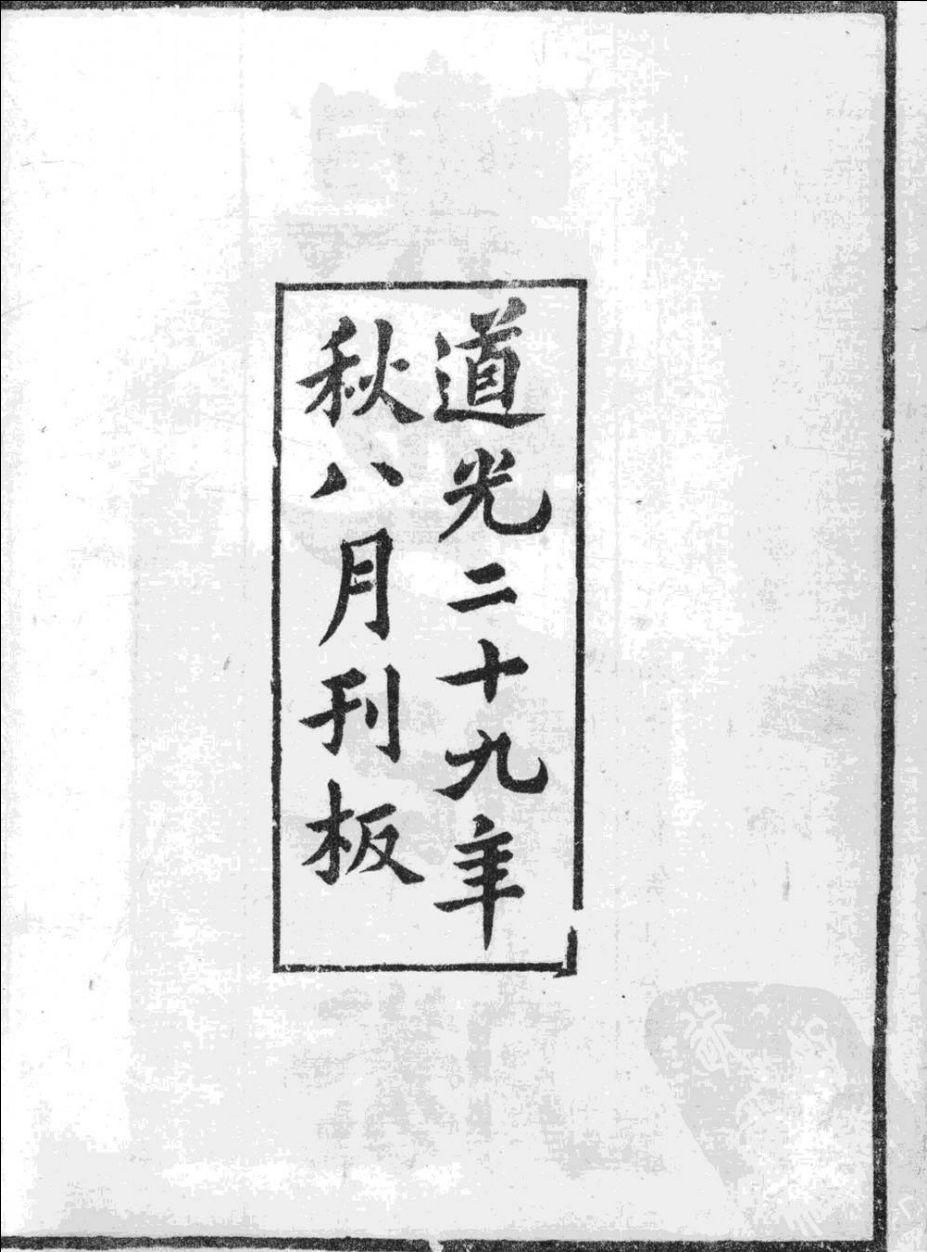 道光二十九年
秋八月刊板